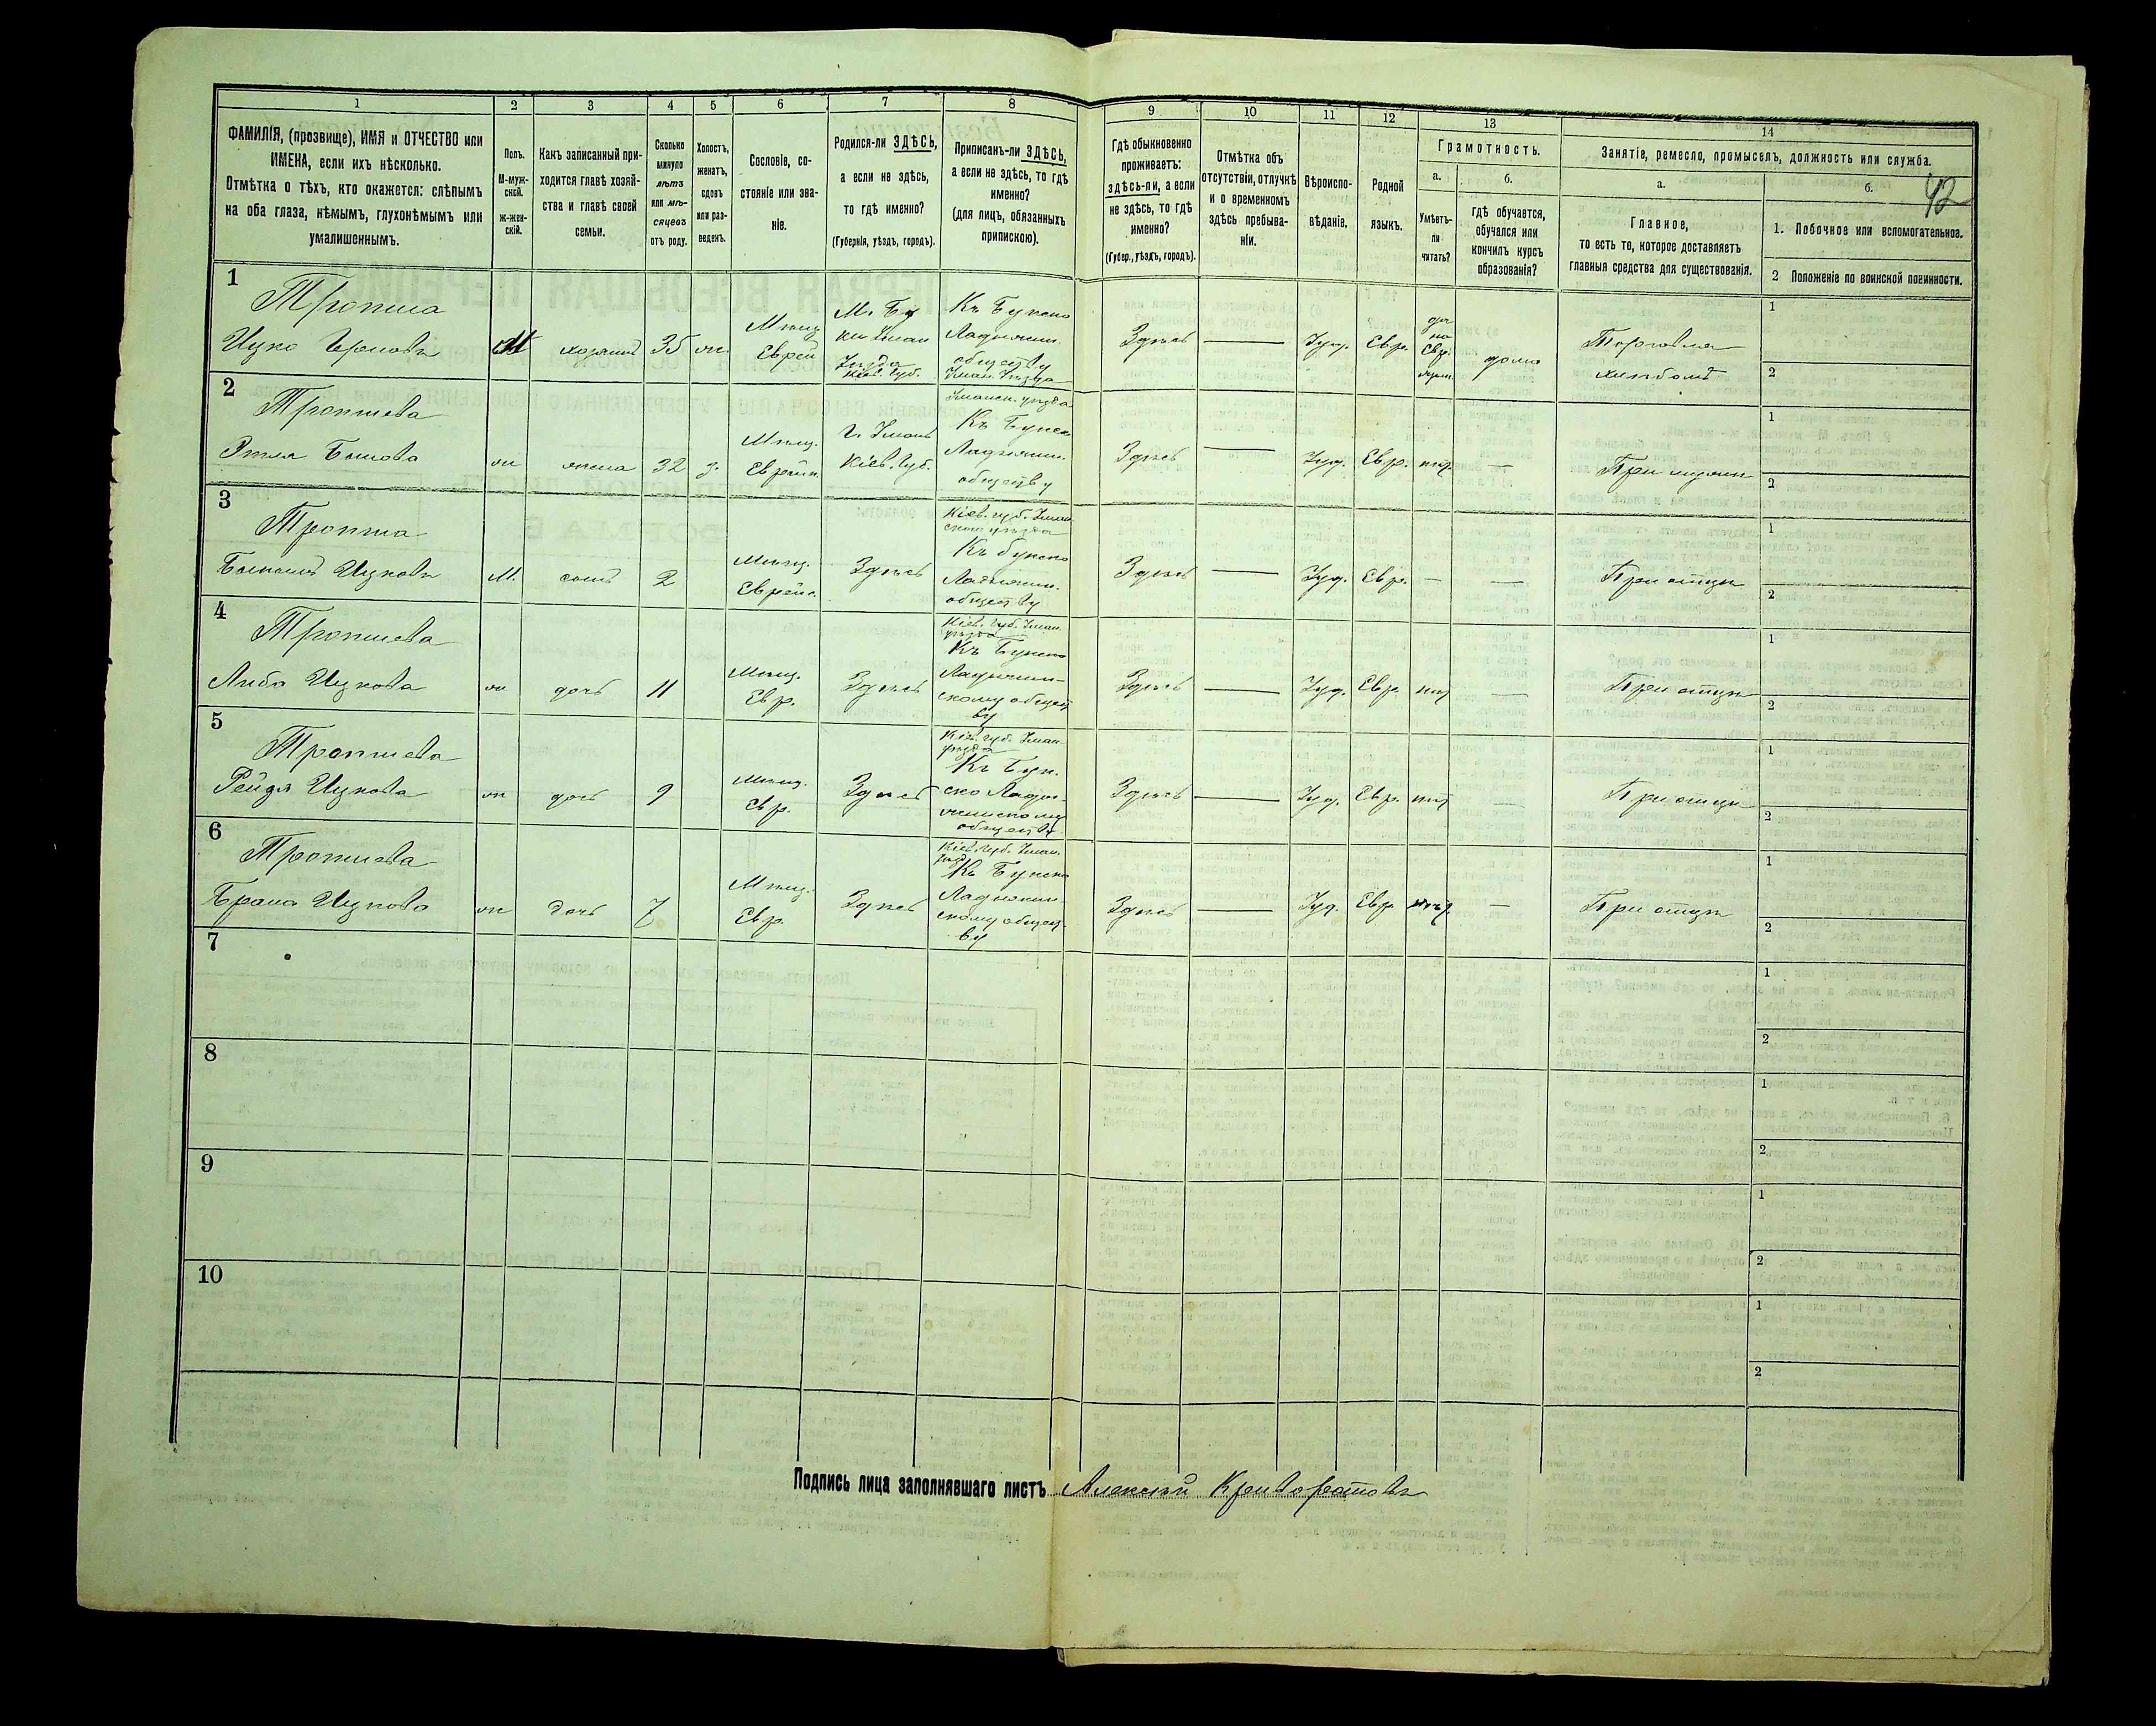 1
2
3
4
5
6
7
8
ФАМИЛІЯ, (прозвище), ИМЯ и ОТЧЕСТВО или
ИМЕНА, если ихъ нѣсколько.
Отмѣтка о тѣхъ, кто окажется: слѣпымъ
на оба глаза, нѣмымъ, глухонѣмымъ или
умалишеннымъ.
Полъ.
М-муж-
ской.
ж-жен-
скій.
Какъ записанный при-
ходится главѣ хозяй-
ства и главѣ своей
семьи.
Сколько
минуло
лѣтъ
или мѣ-
сяцевъ
отъ роду.
Холостъ,
женатъ,
вдовъ
или раз-
веденъ.
Сословіе, со-
стояніе или зва-
ніе.
Родился-ли ЗДѢСЬ,
а если не здѣсь,
то гдѣ именно?
(Губернія, уѣздъ, городъ).
Приписанъ-ли ЗДѢСЬ,
а если не здѣсь, то гдѣ
именно?
(для лицъ, обязанныхъ
припискою).
9
10
11
12
13
14
Гдѣ обыкновенно
проживаетъ:
здѣсь-ли, а если
не здѣсь, то гдѣ
именно?
(Губер., уѣздъ, городъ).
Отмѣтка объ
отсутствіи, отлучкѣ
и о временномъ
здѣсь пребыва-
ніи.
Вѣроиспо-
вѣданіе.
Родной
языкъ.
Грамотность.
а.
б.
Умѣетъ-
ли
читать?
гдѣ обучается,
обучался или
кончилъ курсъ
образованія?
Занятіе, ремесло, промыселъ, должность или служба.
а.
б.
42
Главное,
то есть то, которое доставляетъ
главныя средства для существованія.
1. Побочное или вспомогательное.
2 Положеніе по воинской повинности.
1
Тропша
Ицко
М
хозяинъ
35
ж.
Мѣщ.
Еврей
Кіев. губ.
Къ Букско
Ладыжин.
обществу
Уман. уѣзда
Здѣсь
Іуд.
Евр.
да
по
Евр.
дома
Торговля
хлѣбомъ
1
2
2
Тропшева
Этля
ж
жена
32
з.
Мѣщ.
Еврейк.
г. Умань
Кіев. губ.
Уманск. уѣзда
Къ Букско
Ладыжин.
обществу
Здѣсь
Іуд.
Евр.
нѣт
При мужѣ
1
2
3
Тропша
Ицковъ
М.
сынъ
2
Мѣщ.
Здѣсь
Кіев. губ. Уман-
скаго уѣзда
Къ Букско
Ладыжин.
обществу
Здѣсь
Іуд.
Евр.
При отцѣ
1
2
4
Тропшева
Либа Ицкова
ж
дочь
11
Мѣщ.
Евр.
Здѣсь
Кіев. губ. Уман.
уѣзда
Къ Букско
Ладыжин-
скому общест
ву
Здѣсь
Іуд.
Евр.
нѣт
При отцѣ
1
2
5
Тропшева
Рейдя Ицкова
ж
дочь
9
Мѣщ.
Евр.
Здѣсь
Кіев. губ. Уман.
уѣзда
Къ Бук-
ско Лады-
жинскому
обществу
Здѣсь
Іуд.
Евр.
нѣт
При отцѣ
1
2
6
Тропшева
Брана Ицкова
ж
дочь
7
Мѣщ.
Евр.
Здѣсь
Кіев. губ. Уман.
уѣзд.
Къ Букско
Ладыжин-
скому общест
ву
Здѣсь
Іуд.
Евр.
нѣт.
При отцѣ
1
2
7
1
2
8
1
2
9
1
2
10
1
2
Подпись лица заполнявшаго листъ Алексѣй Криворотовъ